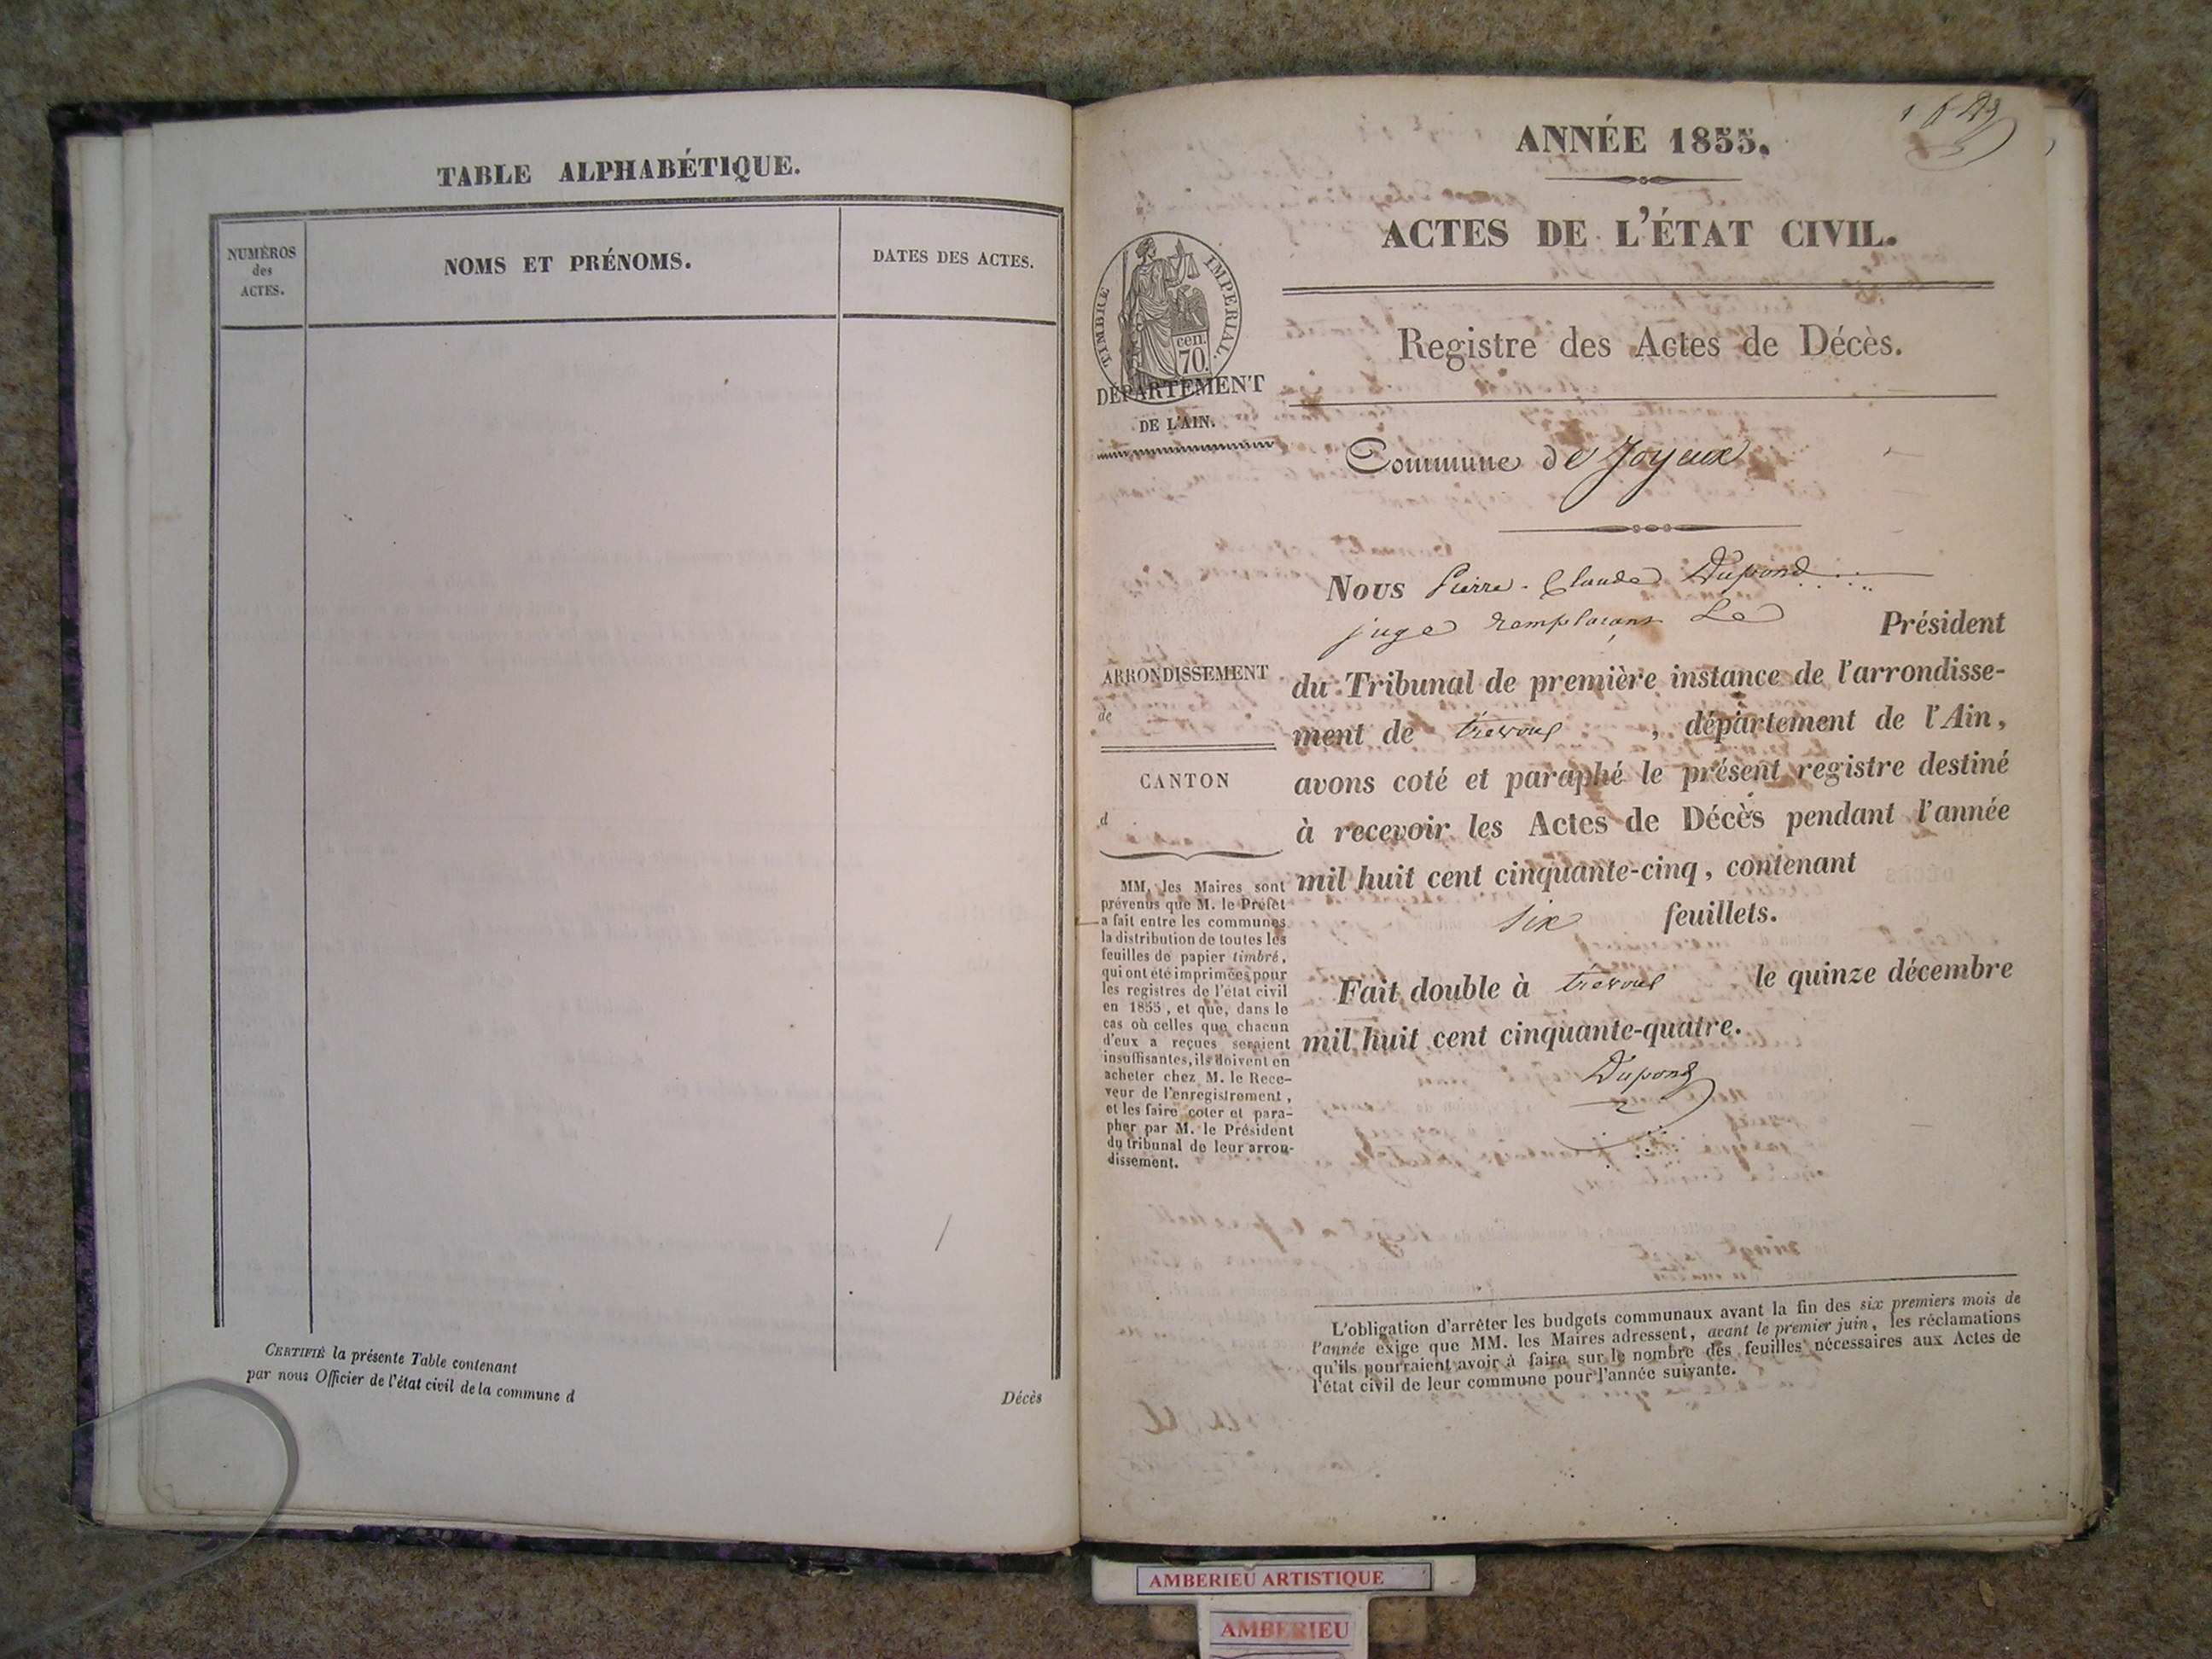 TABLE ALPHABÉTIQUE.
NUMÉROS
des
ACTES.
NOMS ET PRÉNOMS.
DATES DES ACTES.
CERTIFIÉ la présente Table contenant
par nous Officier de l'état civil de la commune d
Décès
ANNÉE 1855.
ACTES DE L'ÉTAT CIVIL.
Registre des Actes de Décès.
TIMBRE IMPERIAL.
cen.
70.
DÉPARTEMENT
DE L'AIN.
Commune de Joyeux
Nous Pierre-Claude Dupond
juge remplaçant Le Président
du Tribunal de première instance de l'arrondisse-
ment de trévoux, département de l'Ain,
avons coté et paraphé le présent registre destiné
à recevoir les Actes de Décès pendant l'année
mil huit cent cinquante-cinq, contenant
six feuillets.
Fait double à trévoux le quinze décembre
mil huit cent cinquante-quatre.
Dupond
ARRONDISSEMENT
de
CANTON
d
MM. les Maires sont
prévenus que M. le Préfet
a fait entre les communes
la distribution de toutes les
feuilles de papier timbré,
qui ont été imprimées pour
les registres de l'état civil
en 1855, et que, dans le
cas où celles que chacun
d'eux a reçues seraient
insuffisantes, ils doivent en
acheter chez M. le Rece-
veur de l'enregistrement,
et les faire coter et para-
pher par M. le Président
du tribunal de leur arron-
dissement.
L'obligation d'arrêter les budgets communaux avant la fin des six premiers mois de
l'année exige que MM. les Maires adressent, avant le premier juin, les réclamations
qu'ils pourraient avoir à faire sur le nombre des feuilles nécessaires aux Actes de
l'état civil de leur commune pour l'année suivante.
AMBERIEU ARTISTIQUE
AMBERIEU